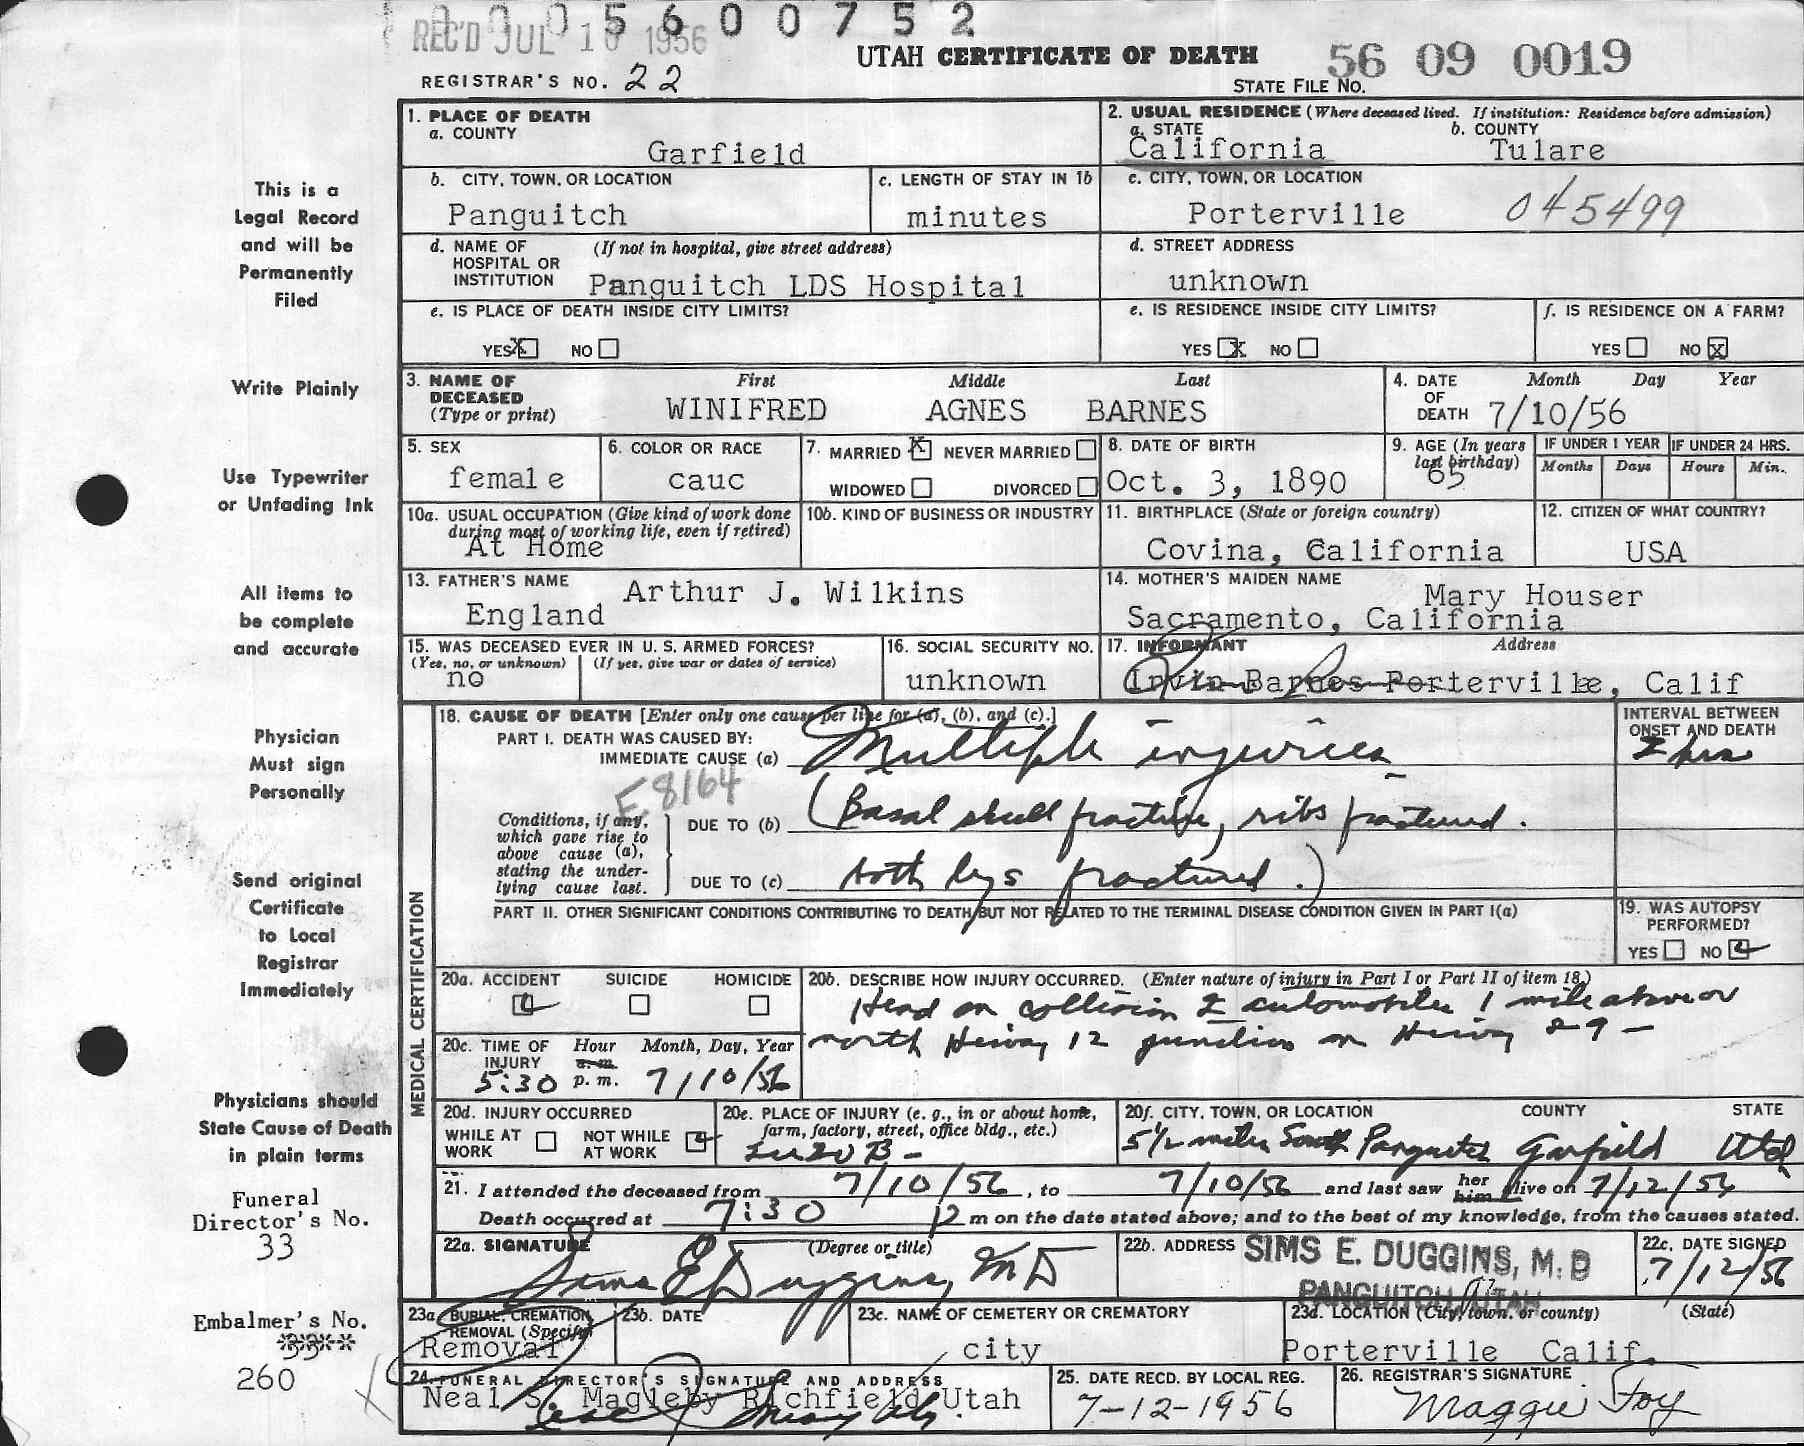 0 0 0 5 6 0 0 7 5 2
REC'D JUL 1 1956
UTAH CERTIFICATE OF DEATH
56 09 0019
REGISTRAR'S NO. 22
STATE FILE NO.
1. PLACE OF DEATH
a. COUNTY
Garfield
2. USUAL RESIDENCE (Where deceased lived. If institution: Residence before admission)
a. STATE
California
b. COUNTY
Tulare
b. CITY, TOWN, OR LOCATION
Panguitch
c. LENGTH OF STAY IN 1b
minutes
c. CITY, TOWN, OR LOCATION
Porterville
045499
d. NAME OF HOSPITAL OR INSTITUTION
(If not in hospital, give street address)
Panguitch LDS Hospital
d. STREET ADDRESS
unknown
e. IS PLACE OF DEATH INSIDE CITY LIMITS?
YES X NO
e. IS RESIDENCE INSIDE CITY LIMITS?
YES X NO
f. IS RESIDENCE ON A FARM?
YES NO X
3. NAME OF DECEASED
(Type or print)
First Middle Last
WINIFRED AGNES BARNES
4. DATE OF DEATH
Month Day Year
7/10/56
5. SEX
female
6. COLOR OR RACE
cauc
7. MARRIED X NEVER MARRIED
WIDOWED DIVORCED
8. DATE OF BIRTH
Oct. 3, 1890
9. AGE (In years last birthday)
65
IF UNDER 1 YEAR
Months Days
IF UNDER 24 HRS.
Hours Min.
10a. USUAL OCCUPATION (Give kind of work done during most of working life, even if retired)
At Home
10b. KIND OF BUSINESS OR INDUSTRY
11. BIRTHPLACE (State or foreign country)
Covina, California
12. CITIZEN OF WHAT COUNTRY?
USA
13. FATHER'S NAME
Arthur J. Wilkins
England
14. MOTHER'S MAIDEN NAME
Mary Houser
Sacramento, California
15. WAS DECEASED EVER IN U. S. ARMED FORCES?
(Yes, no, or unknown) (If yes, give war or dates of service)
no
16. SOCIAL SECURITY NO.
unknown
17. INFORMANT Address
Irvin Barnes Porterville, Calif
MEDICAL CERTIFICATION
18. CAUSE OF DEATH [Enter only one cause per line for (a), (b), and (c).]
PART I. DEATH WAS CAUSED BY:
IMMEDIATE CAUSE (a) Multiple injuries
INTERVAL BETWEEN ONSET AND DEATH
2 hrs
E8164
Conditions, if any, which gave rise to above cause (a), stating the underlying cause last.
DUE TO (b) (Basal skull fracture, ribs fractured.
DUE TO (c) both legs fractured.)
PART II. OTHER SIGNIFICANT CONDITIONS CONTRIBUTING TO DEATH BUT NOT RELATED TO THE TERMINAL DISEASE CONDITION GIVEN IN PART I(a)
19. WAS AUTOPSY PERFORMED?
YES NO
20a. ACCIDENT SUICIDE HOMICIDE
20b. DESCRIBE HOW INJURY OCCURRED. (Enter nature of injury in Part I or Part II of item 18.)
Head on collision 2 automobiles 1 mile above or
north Hiway 12 junction on Hiway 89 —
20c. TIME OF INJURY Hour Month, Day, Year
5:30 a.m. p. m. 7/10/56
20d. INJURY OCCURRED
WHILE AT WORK NOT WHILE AT WORK
20e. PLACE OF INJURY (e. g., in or about home, farm, factory, street, office bldg., etc.)
20f. CITY, TOWN, OR LOCATION COUNTY STATE
5 1/2 miles South Panguitch Garfield Utah
21. I attended the deceased from 7/10/56, to 7/10/56 and last saw her him alive on 7/12/56
Death occurred at 7:30 p m on the date stated above; and to the best of my knowledge, from the causes stated.
22a. SIGNATURE (Degree or title)
Sims E Duggins, MD
22b. ADDRESS
SIMS E. DUGGINS, M. D
PANGUITCH, UTAH
22c. DATE SIGNED
7/12/56
23a. BURIAL, CREMATION, REMOVAL (Specify)
Removal
23b. DATE
23c. NAME OF CEMETERY OR CREMATORY
city
23d. LOCATION (City, town, or county) (State)
Porterville Calif.
24. FUNERAL DIRECTOR'S SIGNATURE AND ADDRESS
Neal S. Magleby Richfield Utah
25. DATE RECD. BY LOCAL REG.
7-12-1956
26. REGISTRAR'S SIGNATURE
Maggie Foy
This is a
Legal Record
and will be
Permanently
Filed
Write Plainly
Use Typewriter
or Unfading Ink
All items to
be complete
and accurate
Physician
Must sign
Personally
Send original
Certificate
to Local
Registrar
Immediately
Physicians should
State Cause of Death
in plain terms
Funeral
Director's No.
33
Embalmer's No.
260